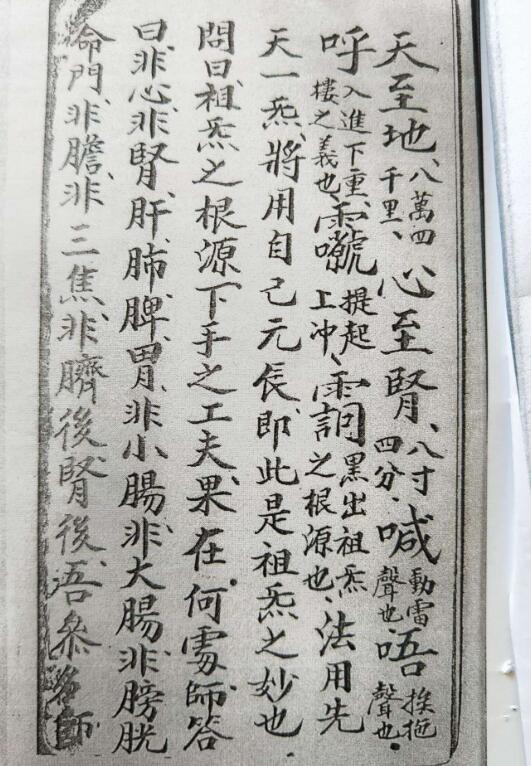 天至地八萬四千里、心至腎、八寸四分、喊動雷聲也、唔挨拖聲也、
呼入進下重樓之義也、提起上冲、黑出祖炁之根源也、法用先
天一炁、將用自己元辰、即此是祖炁之妙也
問曰、祖炁之根源下手之工夫、果在何處、師答
曰、非心、非腎、肝、肺、脾、胃、非小腸、非大腸、非膀胱
命門、非膽、非三焦、非臍後、腎後、吾參名師